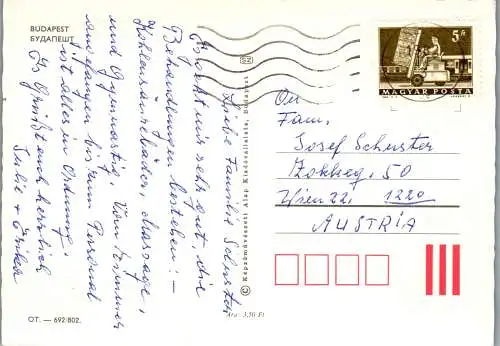 BUDAPEST
БУДАПЕШТ
Liebe Familie Schuster
Es geht uns sehr gut, die
Behandlungen bestehen: –
Kohlensäurebäder, Massage,
und Gymnastik. Vom Zimmer
angefangen bis zum Personal
ist alles in Ordnung.
Es Grüßt euch herzlich
Julie + Erika
OT. — 692/802.
SZ
© Képzőművészeti Alap Kiadóvállalata, Budapest
Ára: 3,50 Ft
5 Ft
MAGYAR POSTA
An
Fam.
Josef Schuster
50
Wien 22. 1220
AUSTRIA